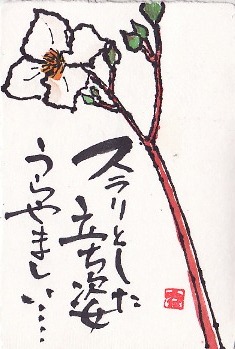 スラリとした
立ち姿
うらやましい……